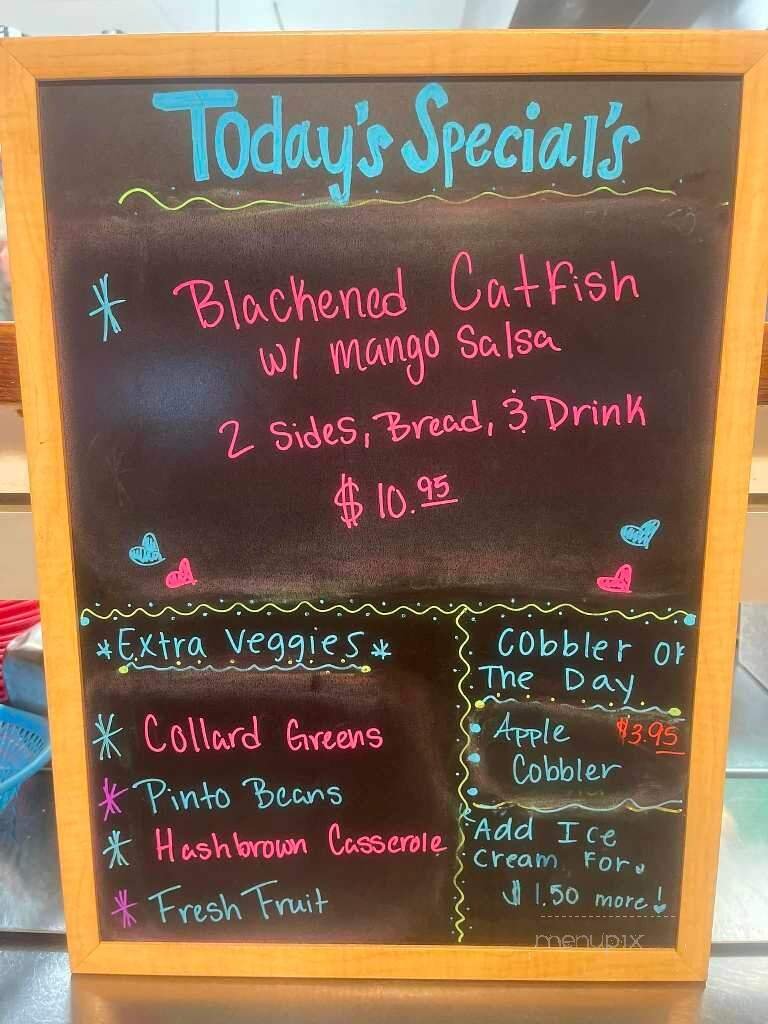 Today's Special's
* Blackened Catfish
w/ mango Salsa
2 Sides, Bread, & Drink
$10.95
*Extra Veggies*
* Collard Greens
* Pinto Beans
* Hashbrown Casserole
* Fresh Fruit
Cobbler Of
The Day
Apple $3.95
Cobbler
Add Ice
Cream For
$1.50 more!
menupix